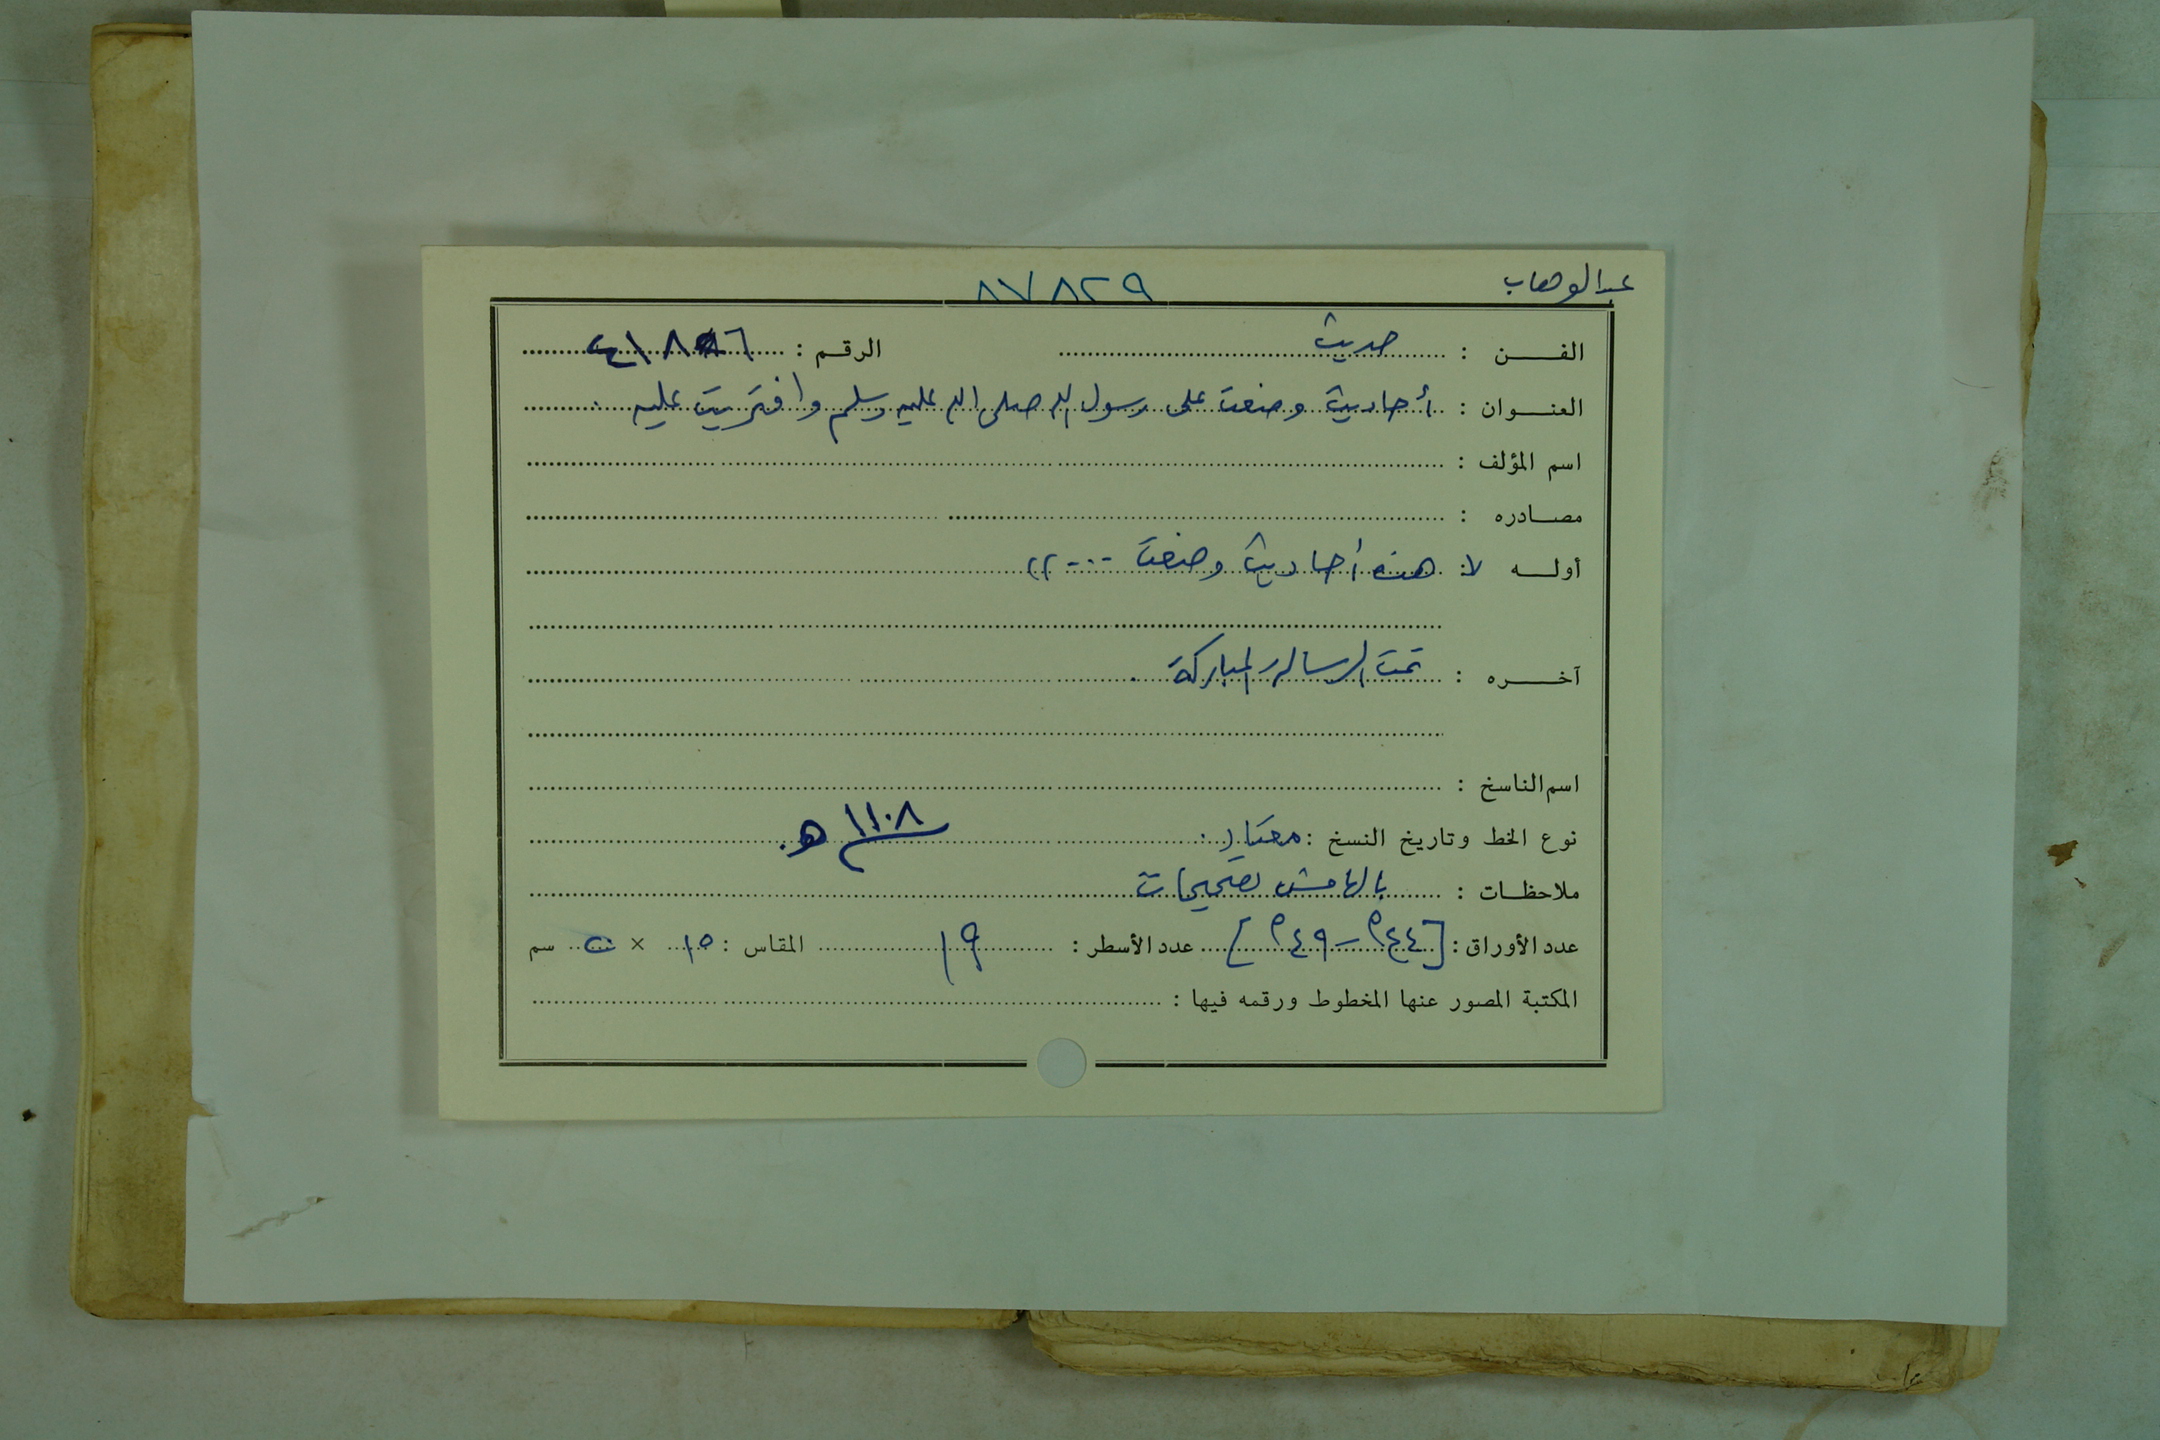 عبدالوهاب
٨٧٨٢٩
الفــن : حديث
الرقم :
العنــوان : أحاديث وضعت على رسول الله صلى الله عليه وسلم وافتريت عليه .
اسم المؤلف :
مصــادره :
أولــه : (( هذه أحاديث وضعت ... ))
آخــره : تمت الرسالة المباركة .
اسم الناسخ :
نوع الخط وتاريخ النسخ : معتاد . ١١٠٨ هـ .
ملاحظــات : بالهامش تصحيحات
عدد الأوراق : [ ٢٤٤ - ٢٤٩ ] عدد الأسطر : ١٩ المقاس : ١٥ × ٢٠ سم
المكتبة المصور عنها المخطوط ورقمه فيها :